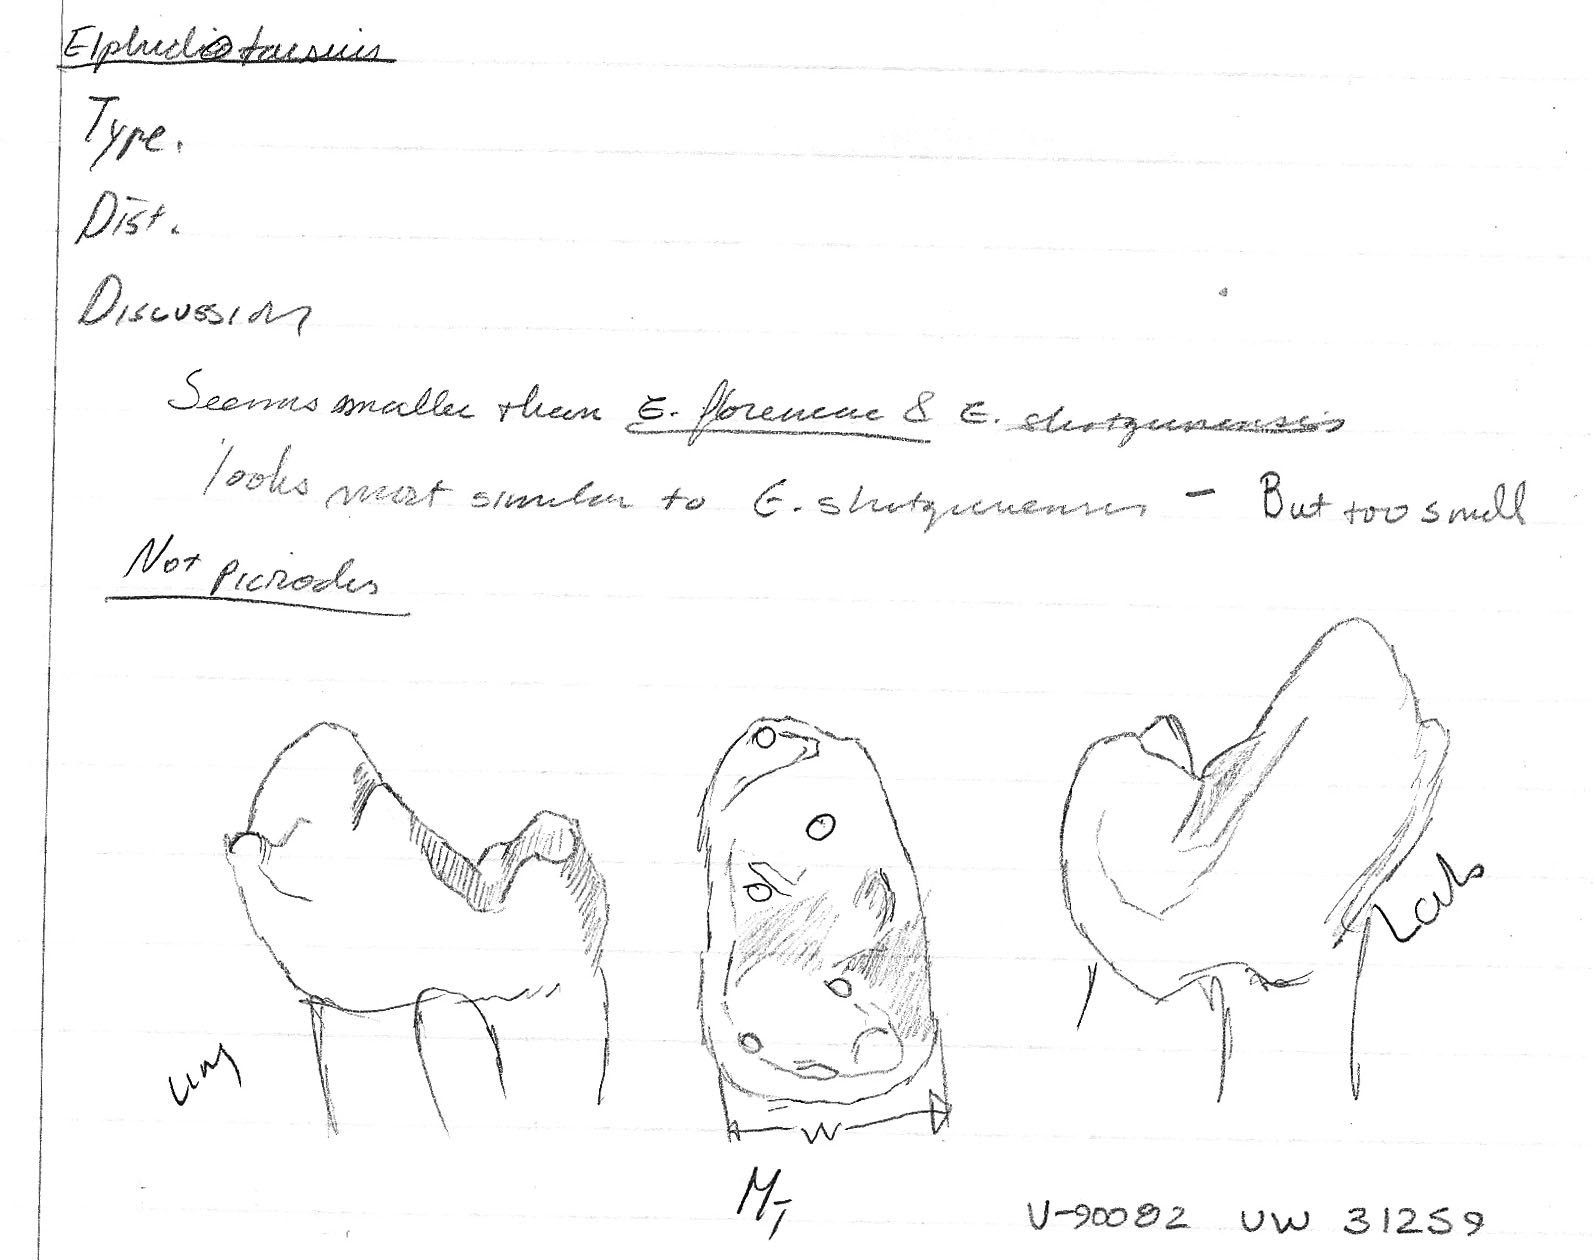 Elphidotarsius
Type.
Dist.
Discussion
Seems smaller than E. florencae & E. shotgunensis
looks most similar to E. shotgunensis - But too small
Not Picrodus
Ling
Lab
W
M1
V-90082 UW 31259